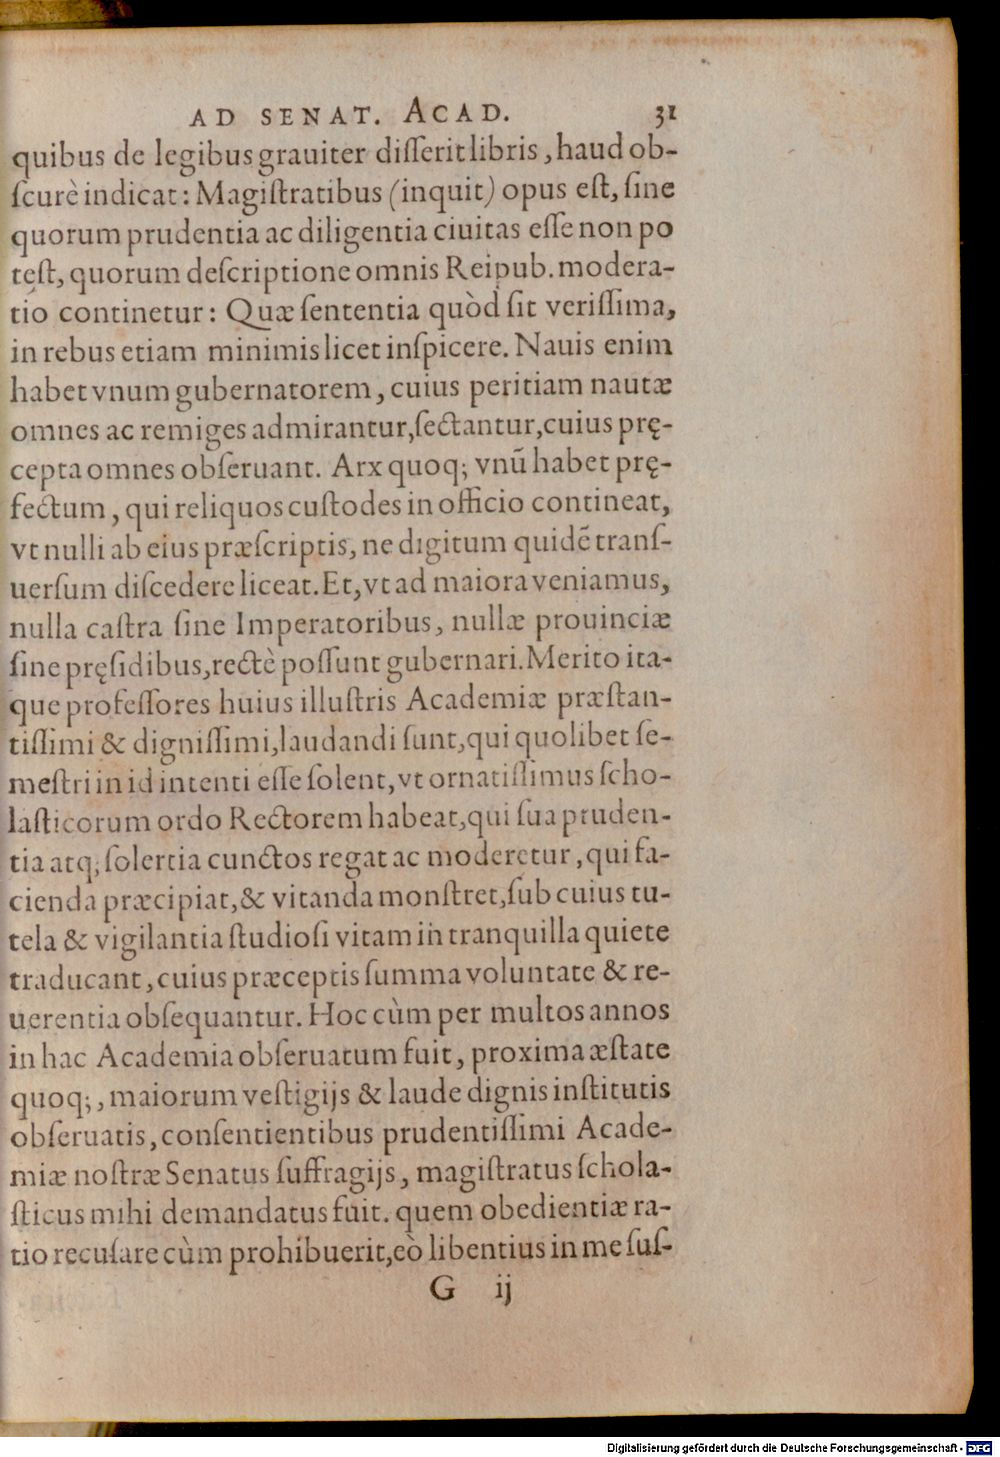 AD SENAT. ACAD. 31
quibus de legibus grauiter disserit libris, haud ob-
scurè indicat: Magistratibus (inquit) opus est, sine
quorum prudentia ac diligentia ciuitas esse non po
test, quorum descriptione omnis Reipub. modera-
tio continetur: Quæ sententia quòd sit verissima,
in rebus etiam minimis licet inspicere. Nauis enim
habet vnum gubernatorem, cuius peritiam nautæ
omnes ac remiges admirantur, sectantur, cuius prę-
cepta omnes obseruant. Arx quoq; vnū habet prę-
fectum, qui reliquos custodes in officio contineat,
vt nulli ab eius præscriptis, ne digitum quidē trans-
uersum discedere liceat. Et, vt ad maiora veniamus,
nulla castra sine Imperatoribus, nullæ prouinciæ
sine pręsidibus, rectè possunt gubernari. Merito ita-
que professores huius illustris Academiæ præstan-
tissimi & dignissimi, laudandi sunt, qui quolibet se-
mestri in id intenti esse solent, vt ornatissimus scho-
lasticorum ordo Rectorem habeat, qui sua pruden-
tia atq; solertia cunctos regat ac moderetur, qui fa-
cienda præcipiat, & vitanda monstret, sub cuius tu-
tela & vigilantia studiosi vitam in tranquilla quiete
traducant, cuius præceptis summa voluntate & re-
uerentia obsequantur. Hoc cùm per multos annos
in hac Academia obseruatum fuit, proxima æstate
quoq;, maiorum vestigijs & laude dignis institutis
obseruatis, consentientibus prudentissimi Acade-
miæ nostræ Senatus suffragijs, magistratus schola-
sticus mihi demandatus fuit. quem obedientiæ ra-
tio recusare cùm prohibuerit, eò libentius in me sus-
G ij
Digitalisierung gefördert durch die Deutsche Forschungsgemeinschaft - DFG